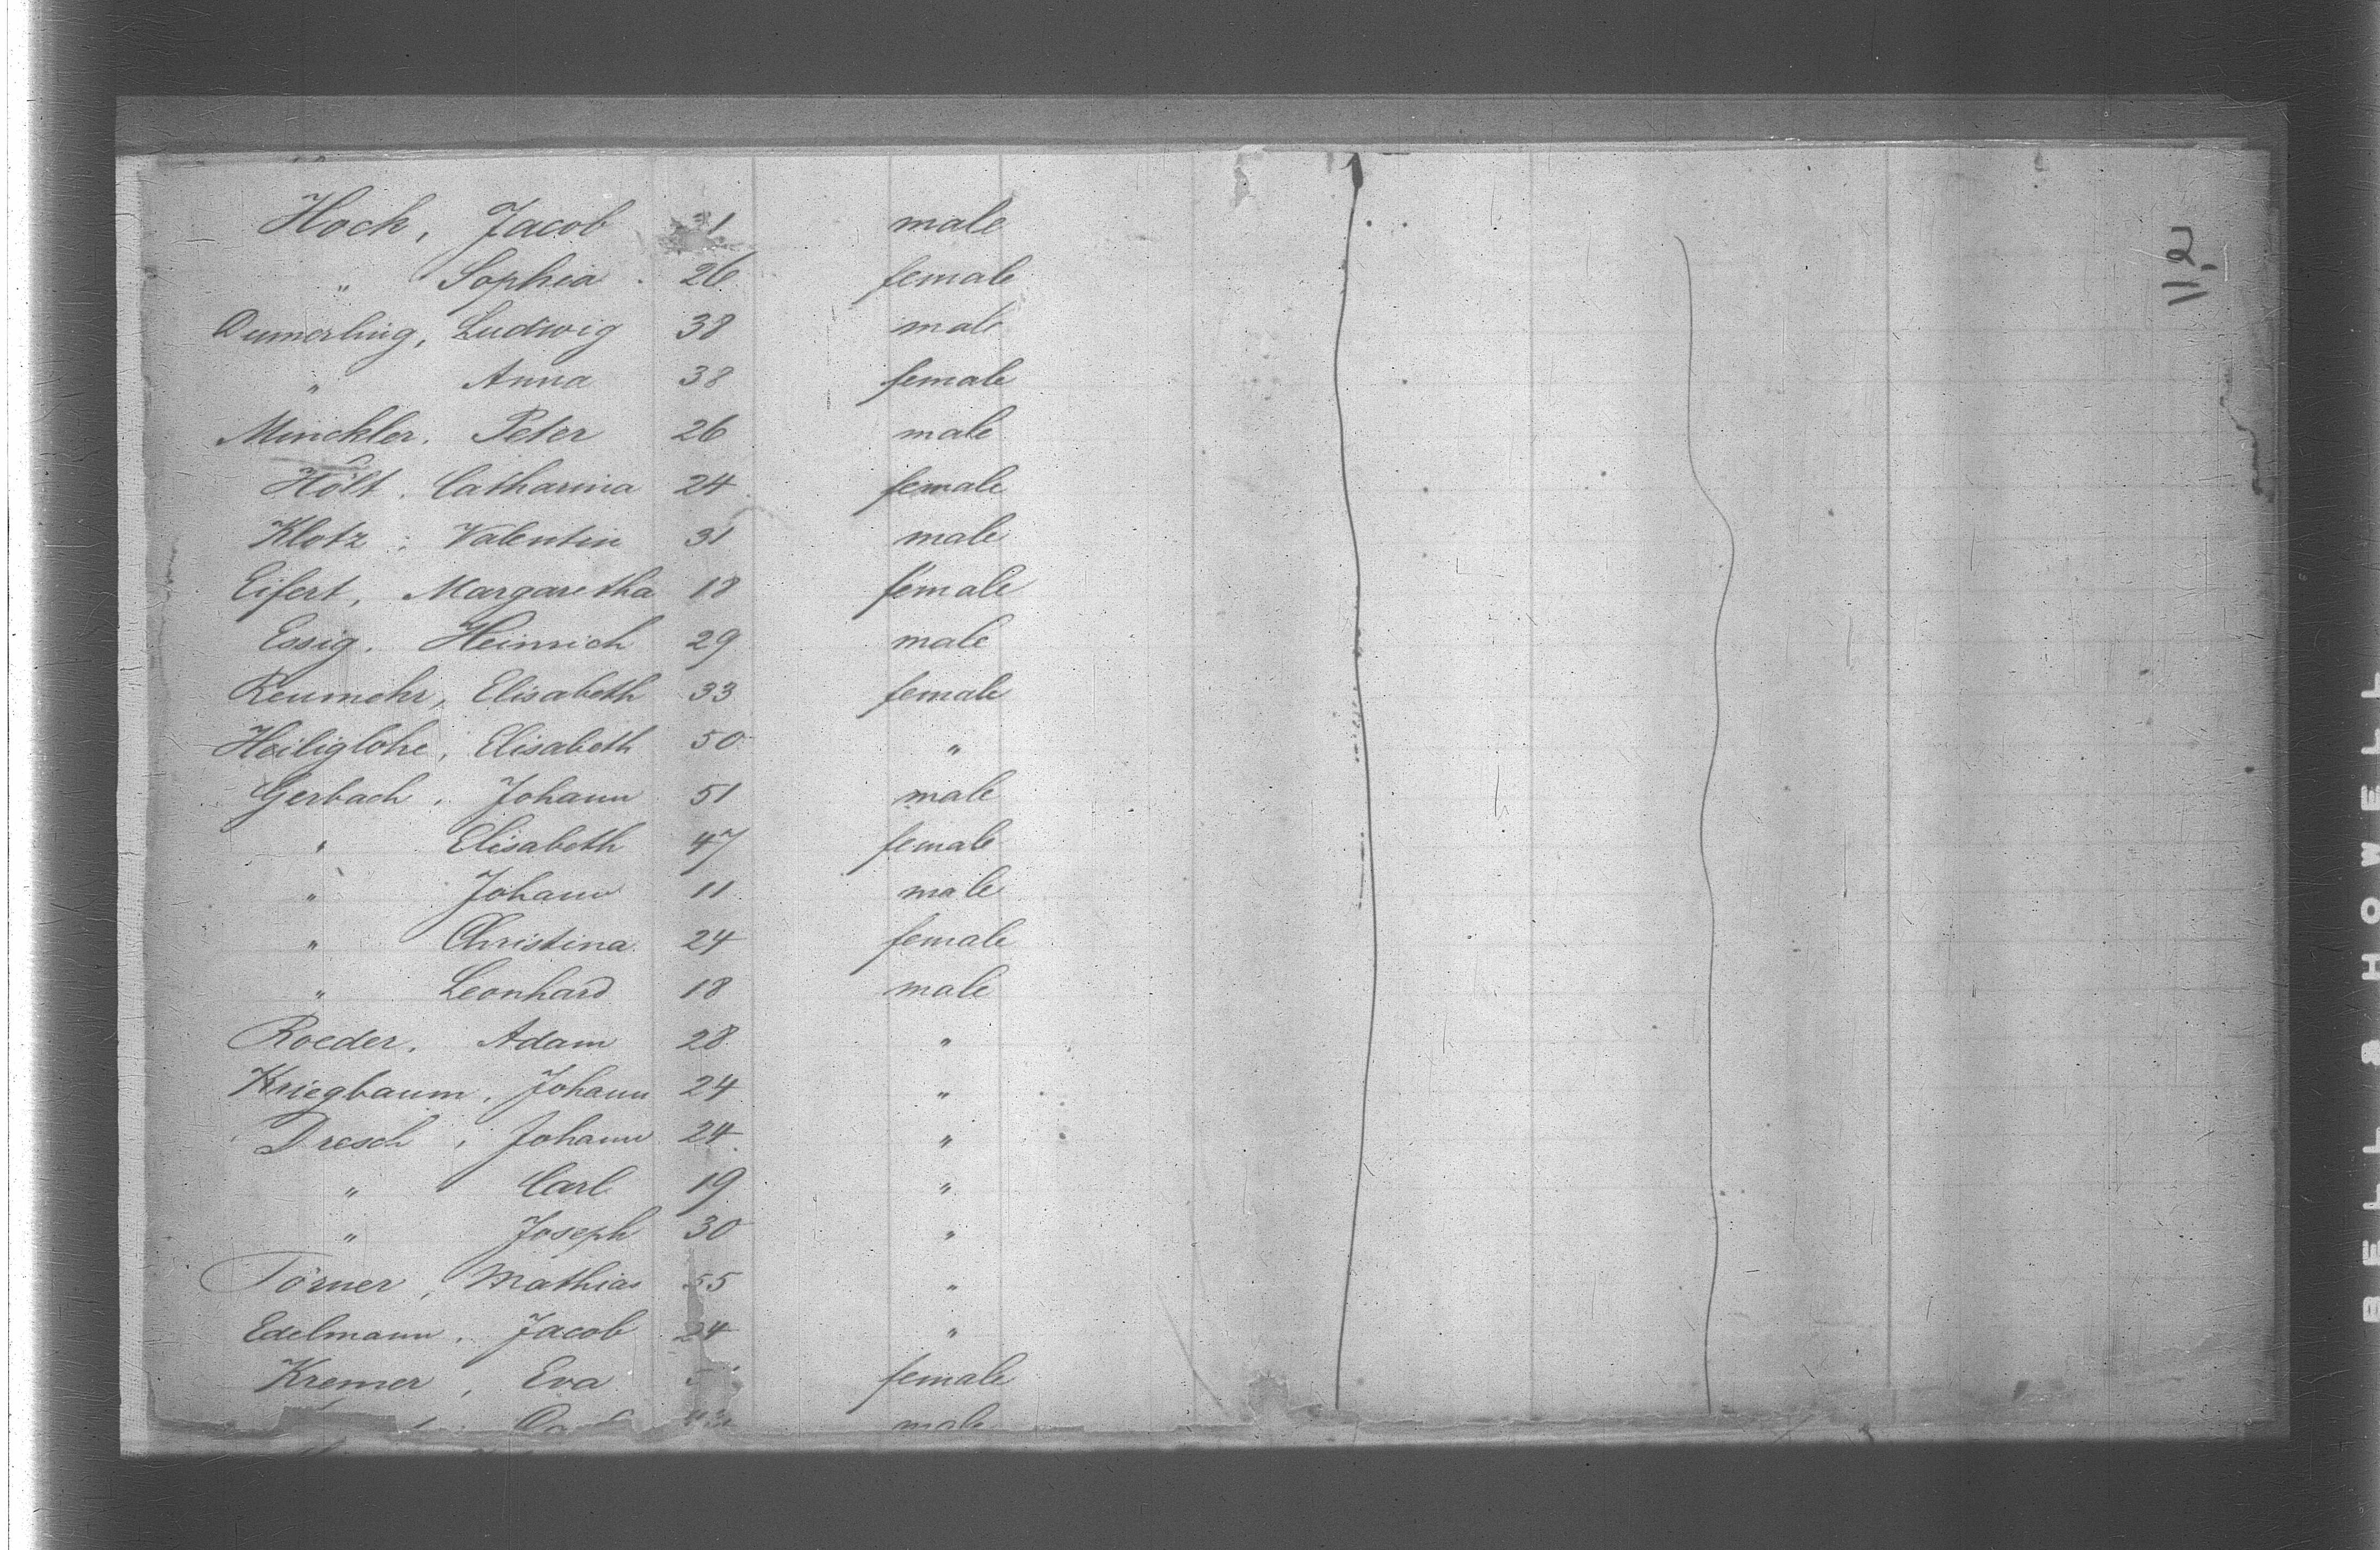 Hock, Jacob 31 male
" Sophia 26 female
Dumerling, Ludwig 38 male
" Anna 38 female
Minckler, Peter 26 male
Hölt, Catharina 24 female
Klotz, Valentin 31 male
Eifert, Margaretha 18 female
Essig, Heinrich 29 male
Reumehr, Elisabeth 33 female
Heiliglohe, Elisabeth 50 "
Gerbach, Johann 51 male
" Elisabeth 47 female
" Johann 11 male
" Christina 24 female
" Leonhard 18 male
Roeder, Adam 28 "
Kriegbaum, Johann 24 "
Dresch, Johann 24 "
" Carl 19 "
" Joseph 30 "
Törner, Mathias 55 "
Edelmann, Jacob 24 "
Kremer, Eva female
male
112
BELL & HOWELL